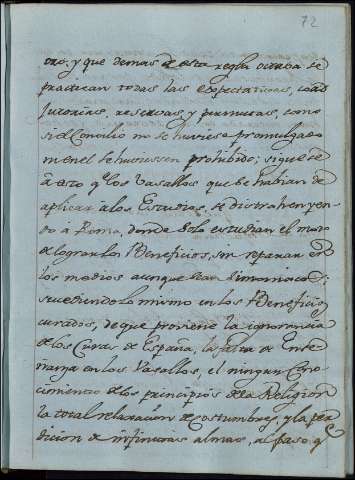 72
oro. y que demas de esta regla octava se
practican todas las expectativas, coad
jutorias, reservas, y permutas, como
si el Concilio no se huviese promulgado
ni en el se huviessen prohibido; siguese
à esto q.e los Vasallos que se habian de
aplicar a los Estudios, se distrahen yen
do à Roma, donde solo estudian el modo
de lograr los Beneficios, sin reparar en
los medios aunque sean simoniacos;
sucediendo lo mismo en los Beneficios
curados, de que proviene la ignorancia
de los Curas de España, la falta de Ense
ñanza en los Vasallos, el ningun Cono
cimiento de los principios de la Religion
la total relaxacion de costumbres, y la per
dicion de infinitas almas, al paso q.e